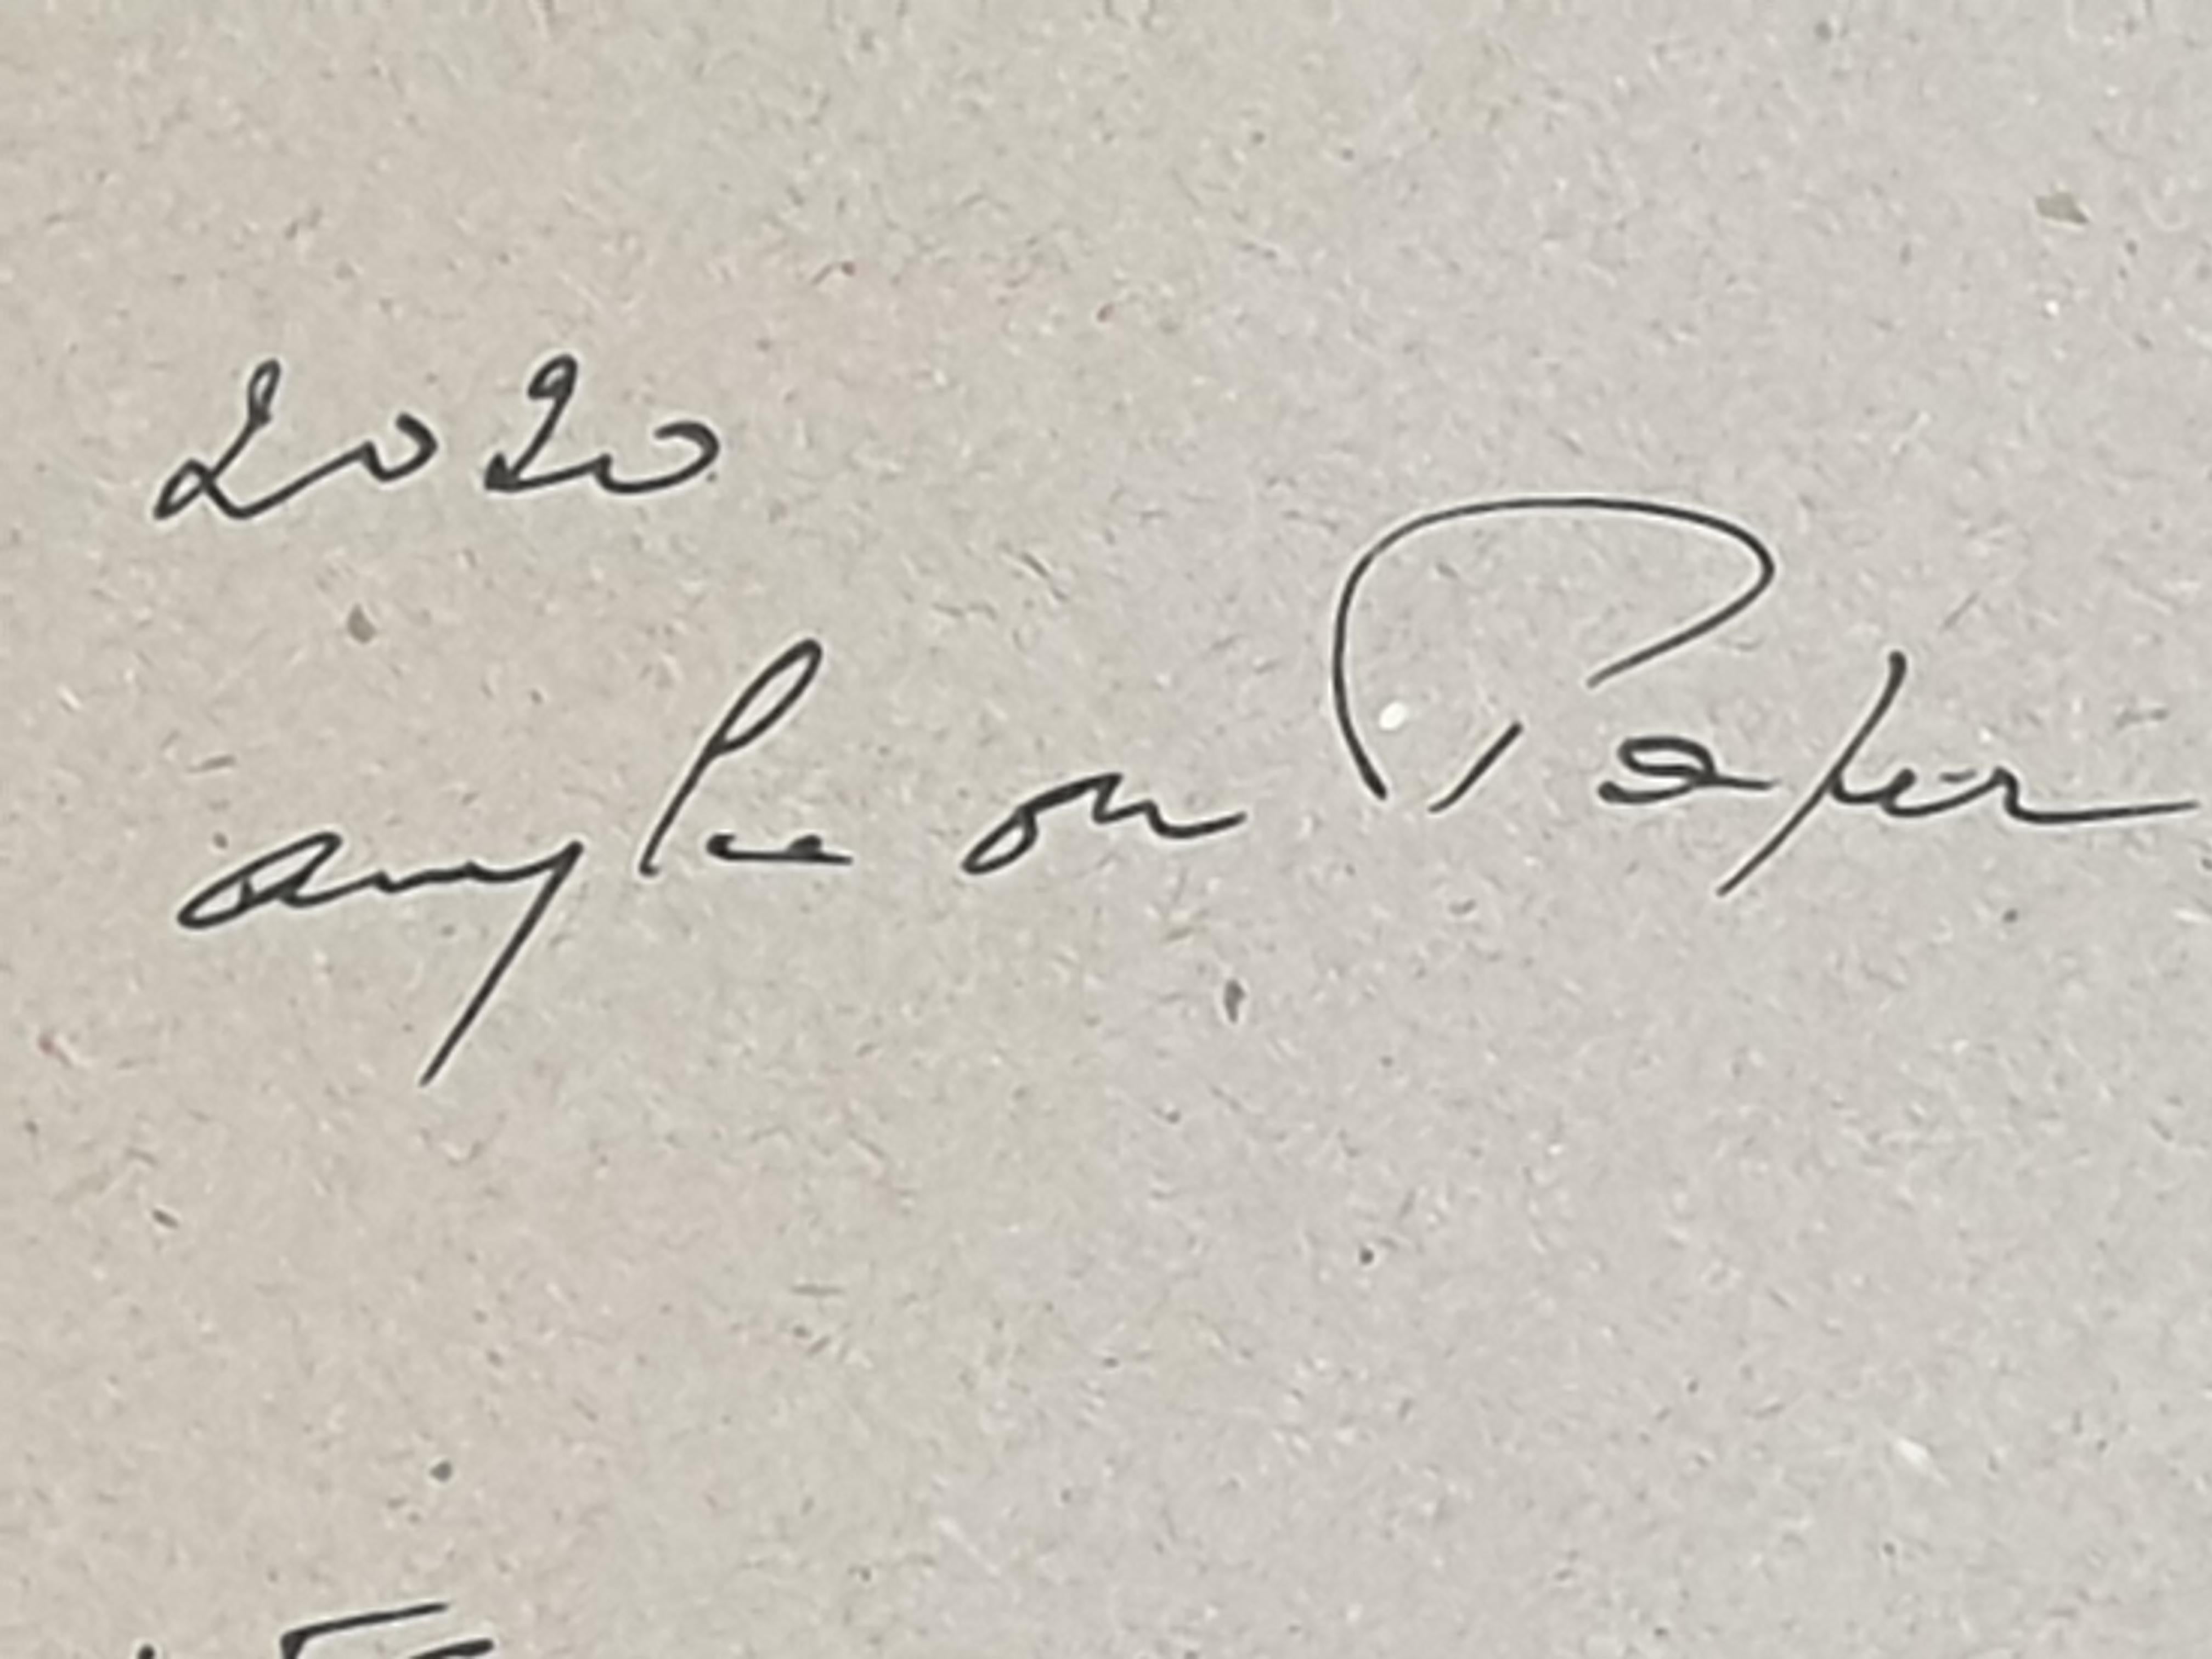 2020
acrylic on Paper